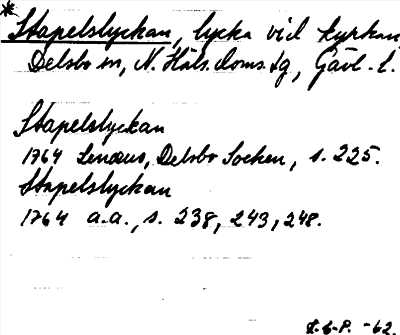 * Stapelslyckan, lycka vid kyrkan
Delsbo sn, N. Häls. doms.g, Gävl. l.
Stapelslyckan
1764 Lenæus, Delsbo Socken, s. 225.
Stapelslyckan
1764 a.a., s. 238, 243, 248.
-62.